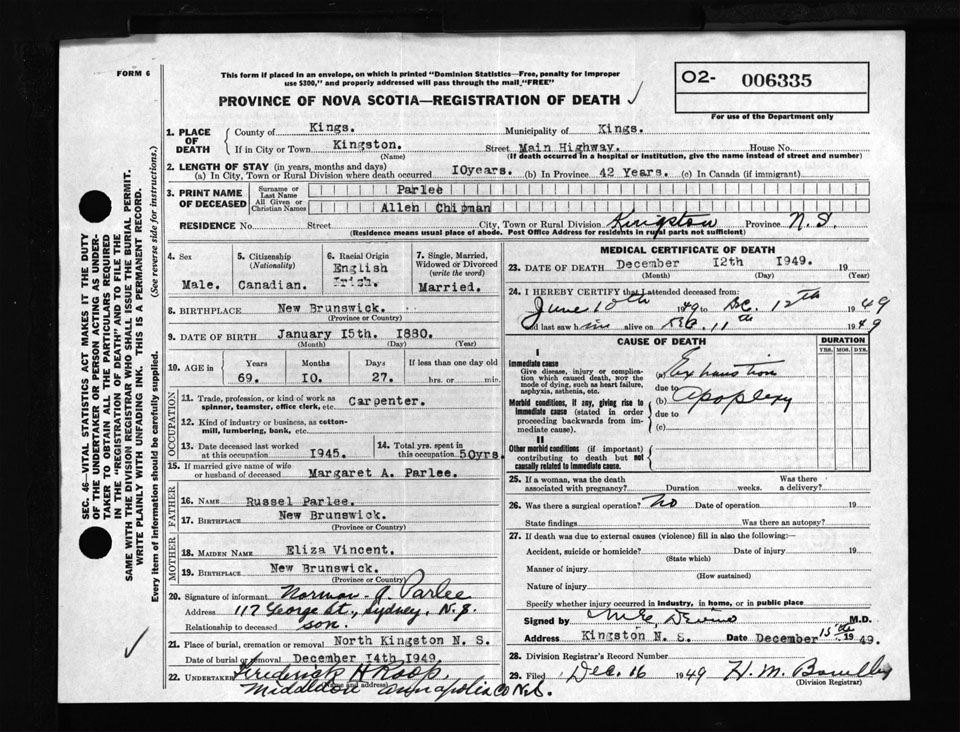 FORM 6
This form if placed in an envelope, on which is printed "Dominion Statistics—Free, penalty for improper
use $300," and properly addressed will pass through the mail "FREE"
O2- 006335
For use of the Department only
PROVINCE OF NOVA SCOTIA—REGISTRATION OF DEATH
1. PLACE OF DEATH County of Kings. Municipality of Kings.
If in City or Town Kingston. Street Main Highway. House No.
(Name) (If death occurred in a hospital or institution, give the name instead of street and number)
2. LENGTH OF STAY (in years, months and days)
(a) In City, Town or Rural Division where death occurred 10years. (b) In Province 42 Years. (c) In Canada (if immigrant)
3. PRINT NAME OF DECEASED Surname or Last Name Parlee
All Given or Christian Names Allen Chipman
RESIDENCE No. Street City, Town or Rural Division Kingston Province N.S.
(Residence means usual place of abode. Post Office Address for residents in rural parts not sufficient)
4. Sex Male.
5. Citizenship (Nationality) Canadian.
6. Racial Origin English Irish.
7. Single, Married, Widowed or Divorced (write the word) Married.
8. BIRTHPLACE New Brunswick.
(Province or Country)
9. DATE OF BIRTH January 15th. 1880.
(Month) (Day) (Year)
10. AGE in Years Months Days If less than one day old
69. 10. 27. hrs. or min.
OCCUPATION
11. Trade, profession, or kind of work as spinner, teamster, office clerk, etc. Carpenter.
12. Kind of industry or business, as cotton-mill, lumbering, bank, etc.
13. Date deceased last worked at this occupation 1945.
14. Total yrs. spent in this occupation 50yrs.
15. If married give name of wife or husband of deceased Margaret A. Parlee.
FATHER
16. NAME Russel Parlee.
17. BIRTHPLACE New Brunswick.
(Province or Country)
MOTHER
18. MAIDEN NAME Eliza Vincent.
19. BIRTHPLACE New Brunswick.
(Province or Country)
20. Signature of informant Norman A. Parlee
Address 117 George St., Sydney, N.S.
Relationship to deceased son.
21. Place of burial, cremation or removal North Kingston N. S.
Date of burial or removal December 14th 1949.
22. UNDERTAKER Frederick H Roop,
(Name and address)
Middleton Annapolis Co N.S.
MEDICAL CERTIFICATE OF DEATH
23. DATE OF DEATH December 12th 1949. 19
(Month) (Day) (Year)
24. I HEREBY CERTIFY that I attended deceased from:
June 10th 1949 to Dec. 12th 1949
and last saw him alive on Dec. 11th 1949
CAUSE OF DEATH
DURATION
YRS. MOS. DYS.
I
Immediate cause
Give disease, injury or complication which caused death, NOT the mode of dying, such as heart failure, asphyxia, asthenia, etc.
(a) Exhaustion
due to
Morbid conditions, if any, giving rise to immediate cause (stated in order proceeding backwards from immediate cause).
(b) Apoplexy
due to
(c)
II
Other morbid conditions (if important) contributing to death but not causally related to immediate cause.
25. If a woman, was the death associated with pregnancy? Duration weeks. Was there a delivery?
26. Was there a surgical operation? No Date of operation 19
State findings Was there an autopsy?
27. If death was due to external causes (violence) fill in also the following:—
Accident, suicide or homicide? Date of injury 19
(State which)
Manner of injury
(How sustained)
Nature of injury
Specify whether injury occurred in industry, in home, or in public place
Signed by M.D.
Address Kingston N. S. Date December 15th 1949.
28. Division Registrar's Record Number
29. Filed Dec. 16 1949 H. M.
(Division Registrar)
SEC. 46—VITAL STATISTICS ACT MAKES IT THE DUTY
OF THE UNDERTAKER OR PERSON ACTING AS UNDER-
TAKER TO OBTAIN ALL THE PARTICULARS REQUIRED
IN THE "REGISTRATION OF DEATH" AND TO FILE THE
SAME WITH THE DIVISION REGISTRAR WHO SHALL ISSUE THE BURIAL PERMIT.
WRITE PLAINLY WITH UNFADING INK. THIS IS A PERMANENT RECORD.
Every item of information should be carefully supplied. (See reverse side for instructions.)